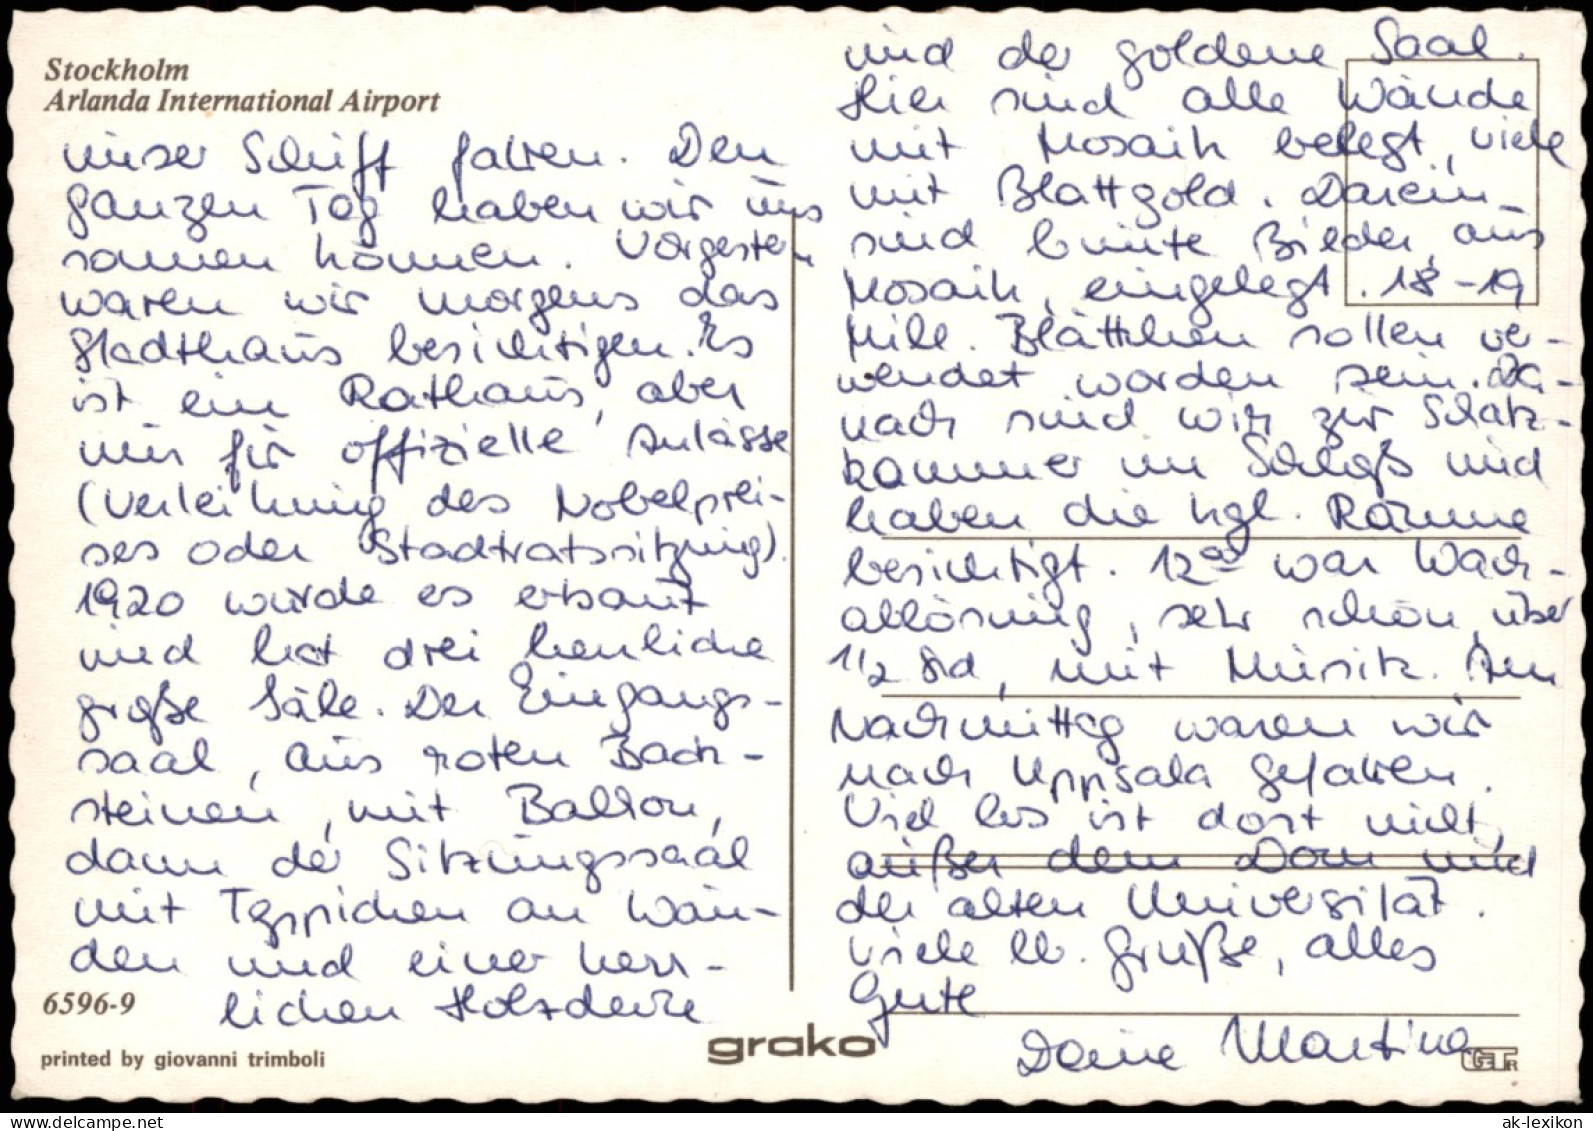 Stockholm
Arlanda International Airport
unser Schiff fahren. Den
ganzen Tag haben wir uns
sonnen können. Vorgestern
waren wir morgens das
Stadthaus besichtigen. Es
ist ein Rathaus, aber
nur für offizielle Anlässe
(Verleihung des Nobelprei-
ses oder Stadtratssitzung).
1920 wurde es erbaut
und hat drei herrliche
große Säle. Der Eingangs-
saal, aus roten Back-
steinen, mit Balkon,
dann der Sitzungssaal
mit Teppichen an Wän-
den und einer herr-
lichen Holzdecke
6596-9
printed by giovanni trimboli
grako
und der goldene Saal.
Hier sind alle Wände
mit Mosaik belegt, viele
mit Blattgold. Darein
sind bunte Bilder, aus
Mosaik, eingelegt. 18-19
Mill. Blättchen sollen ver-
wendet worden sein. Da-
nach sind wir zur Schatz-
kammer im Schloß und
haben die kgl. Räume
besichtigt. 12⁰⁰ war Wach-
ablösung, sehr schön, über
1/2 Std, mit Musik. Am
Nachmittag waren wir
nach Uppsala gefahren.
Viel los ist dort nicht,
außer dem Dom und
der alten Universität.
Viele lb. Grüße, alles
Gute
Deine Martina
GTR
ak-lexikon